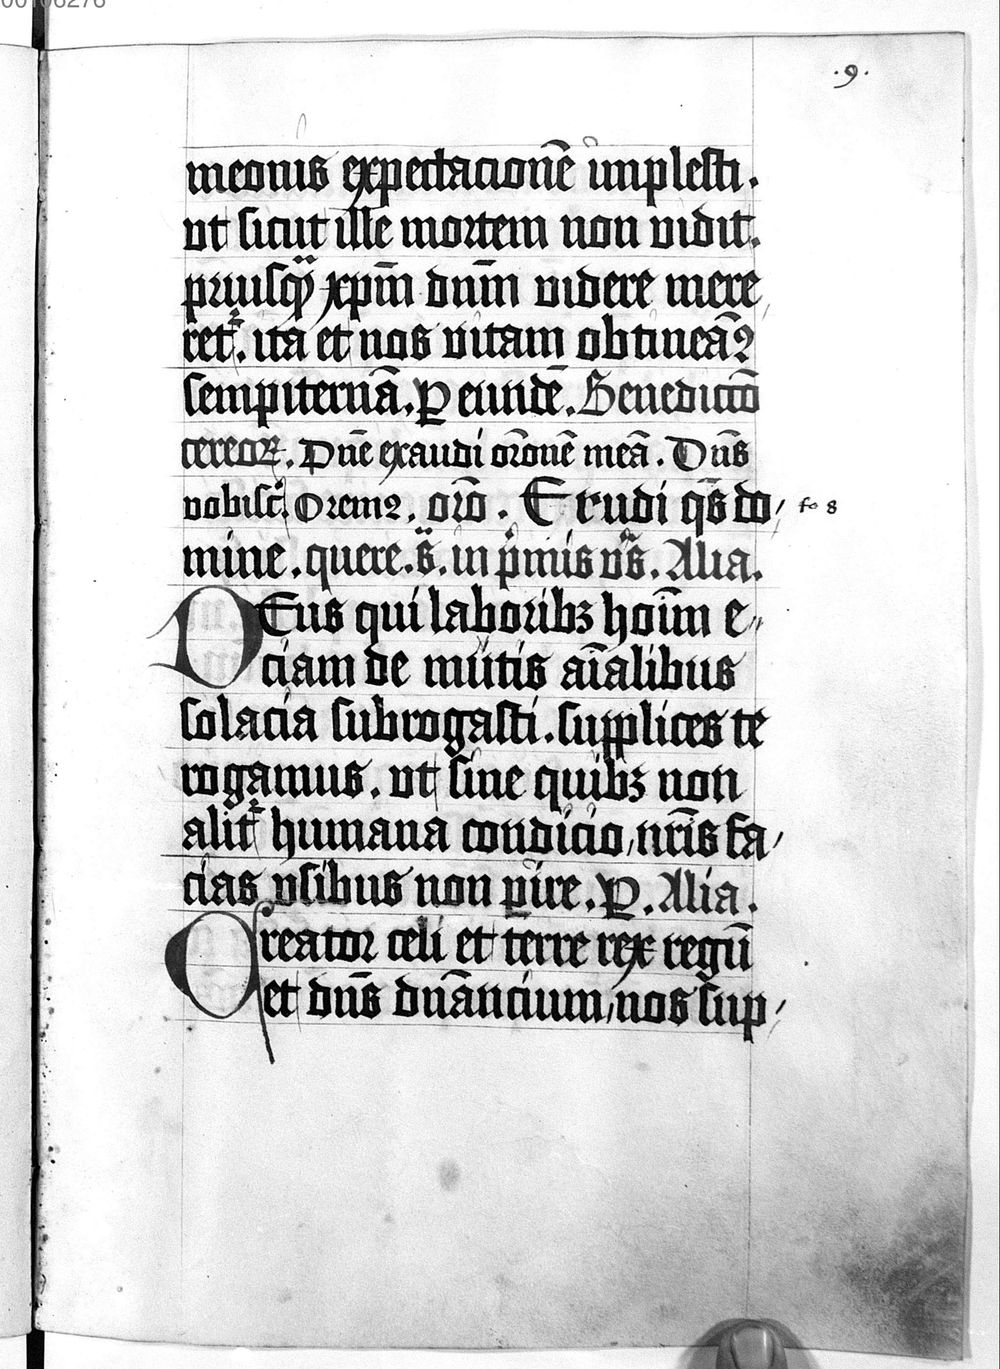 00106276
.9.
meonis expectacionē implesti.
vt sicut ille mortem non vidit.
priusq̃ xp̄m dn̄m videre mere
ret᷑. ita et nos vitam obtineāꝰ
sempiternā. ꝑ eundē. Benedictō
cereoꝝ. Dn̄e exaudi or̄onē meā. Dn̄s
nobisc̄. Oremꝰ. or̄o. Erudi q̄s do/
fo 8
mine. quere. s̄. in p̄mis v̄s. Alia.
DEus qui laboribꝫ hoīm e/
ciam de mutis aīalibus
solacia subrogasti. supplices te
rogamus. vt sine quibꝫ non
alit᷑ humana condicio, nr̄is fa/
cias vsibus non ꝑire. ꝑ. Alia.
Creator celi et terre rex regū
et dn̄s dn̄ancium, nos sup/